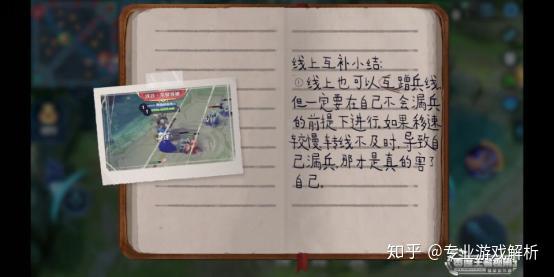 线上互补小结:
①线上也可以互蹭兵线,
但一定要在自己不会漏兵
的前提下进行,如果移速
较慢转线不及时,导致自
己漏兵,那才是真的害了
自己.
知乎 @专业游戏解析